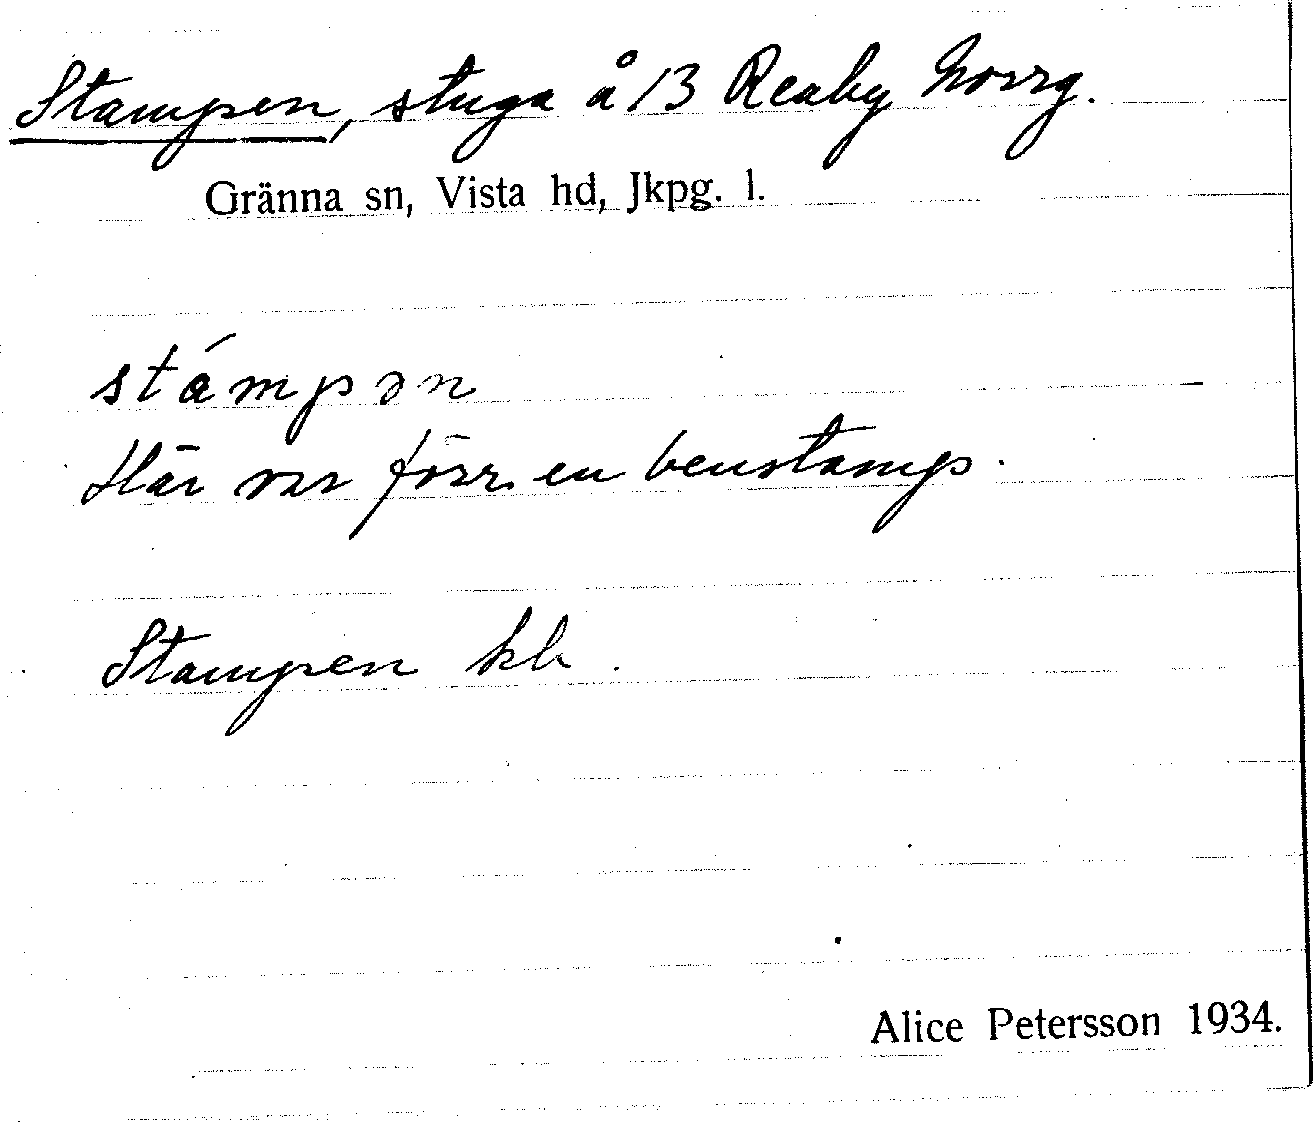 Stampen, stuga å 13 Reaby Norrg.
Gränna sn, Vista hd, Jkpg. l.
stámpən
Här var förr en benstamp.
Stampen kb
Alice Petersson 1934.